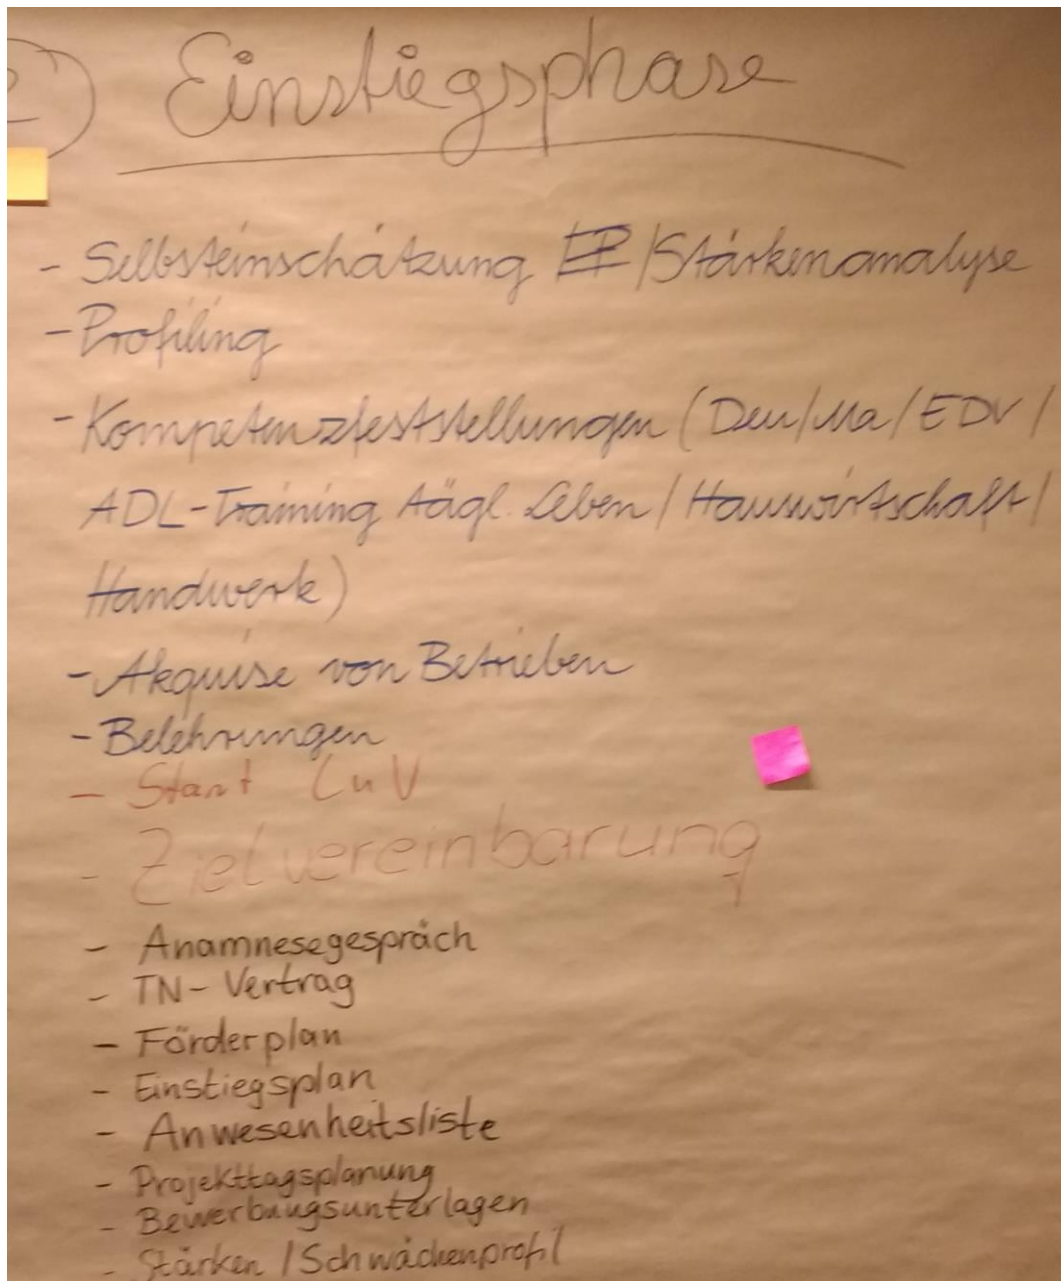 2) Einstiegsphase
- Selbsteinschätzung /Stärkenanalyse
- Profiling
- Kompetenzfeststellungen (Deu/Ma/EDV/
ADL-Training tägl. Leben/Hauswirtschaft/
Handwerk)
- Akquise von Betrieben
- Belehrungen
- Start LuV
- Zielvereinbarung
- Anamnesegespräch
- TN-Vertrag
- Förderplan
- Einstiegsplan
- Anwesenheitsliste
- Projekttagsplanung
- Bewerbungsunterlagen
- Stärken/Schwächenprofil